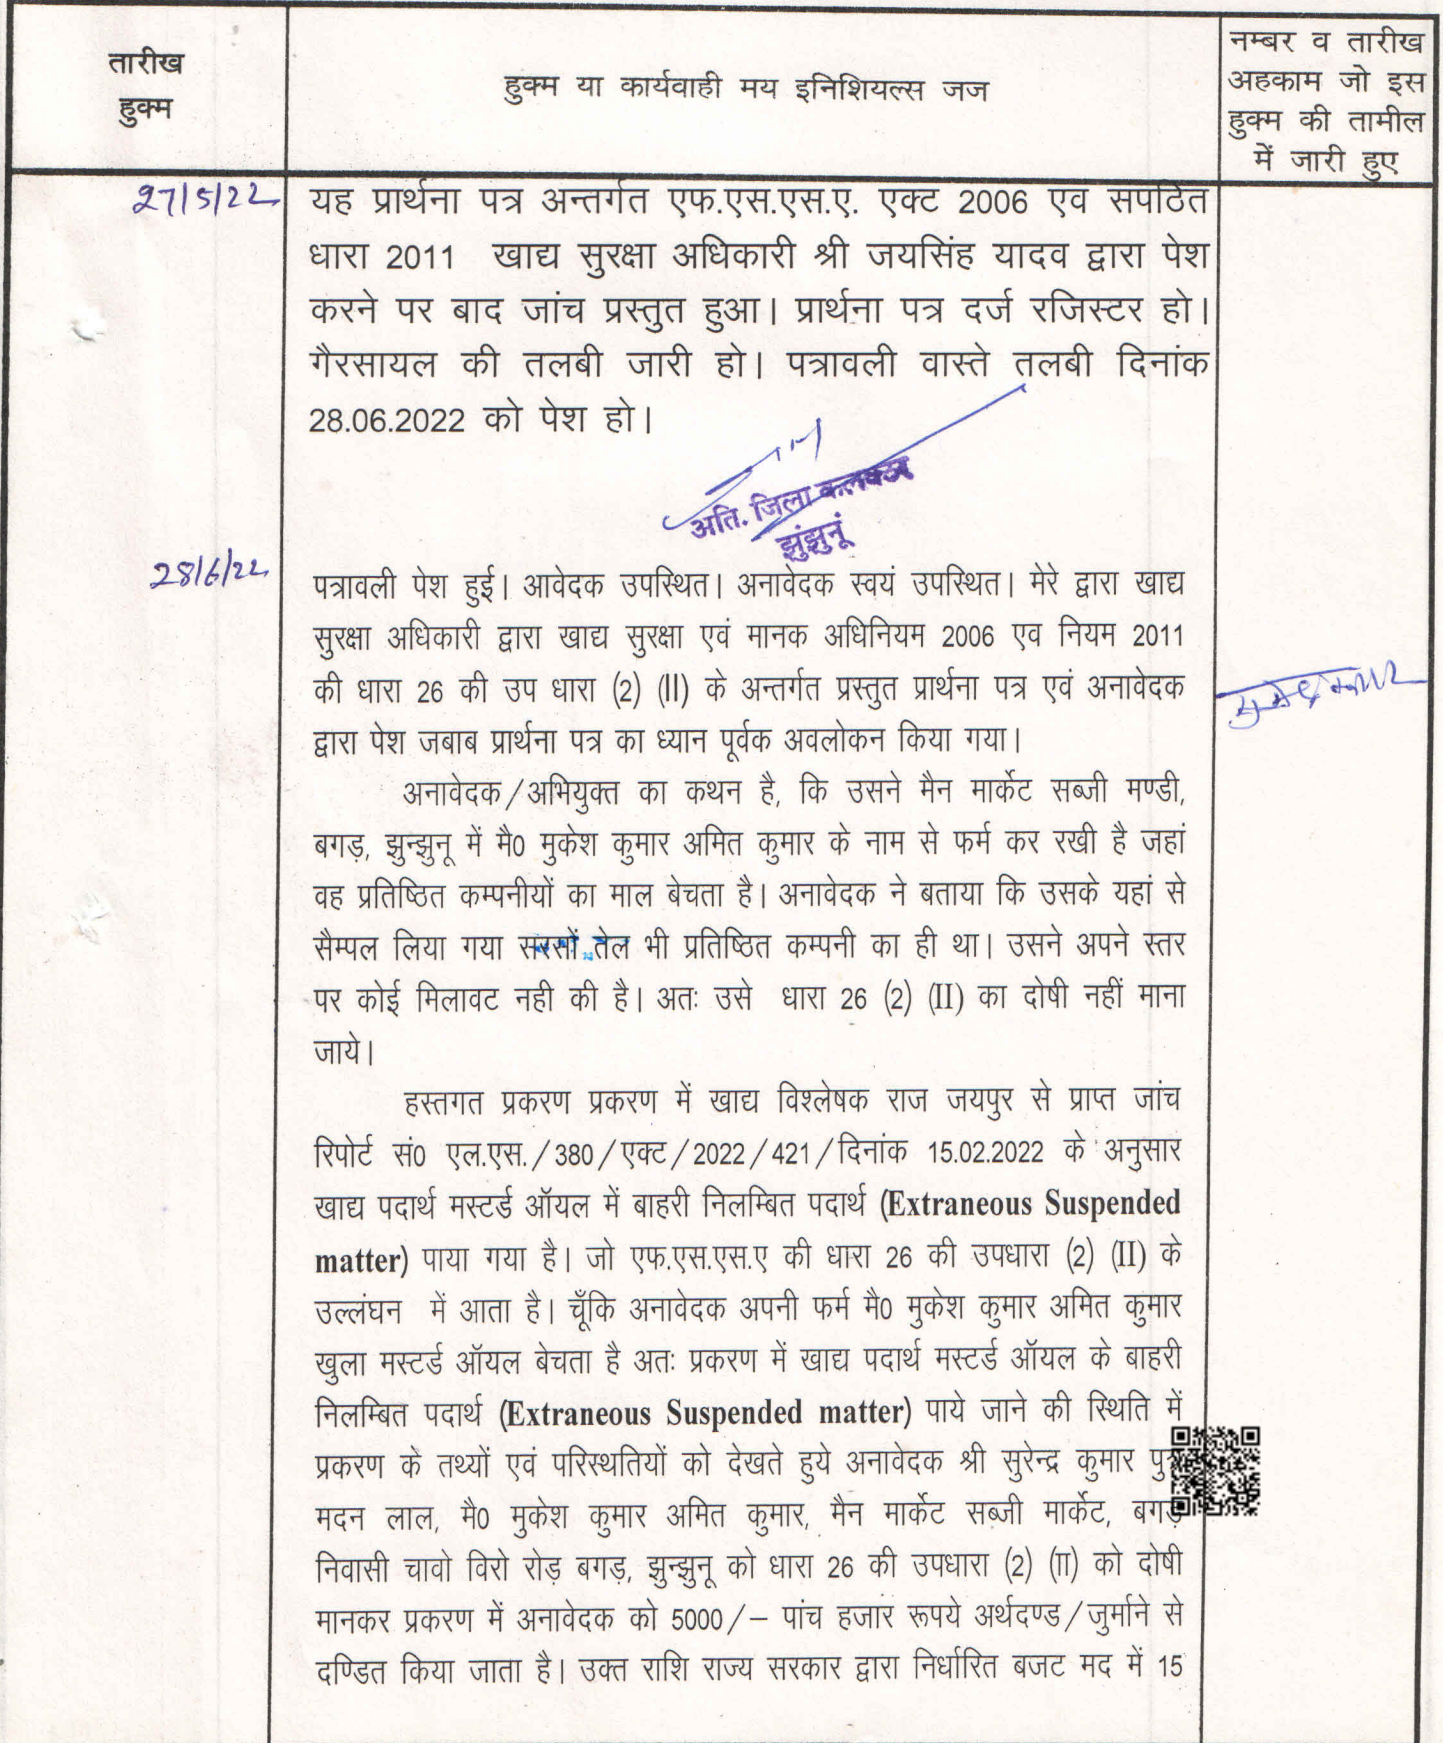 तारीख
हुक्म
हुक्म या कार्यवाही मय इनिशियल्स जज
नम्बर व तारीख
अहकाम जो इस
हुक्म की तामील
में जारी हुए
27/5/22
यह प्रार्थना पत्र अन्तर्गत एफ.एस.एस.ए. एक्ट 2006 एव सपठित
धारा 2011 खाद्य सुरक्षा अधिकारी श्री जयसिंह यादव द्वारा पेश
करने पर बाद जांच प्रस्तुत हुआ। प्रार्थना पत्र दर्ज रजिस्टर हो।
गैरसायल की तलबी जारी हो। पत्रावली वास्ते तलबी दिनांक
28.06.2022 को पेश हो।
अति. जिला कलक्टर
झुंझुनूं
28/6/22
पत्रावली पेश हुई। आवेदक उपस्थित। अनावेदक स्वयं उपस्थित। मेरे द्वारा खाद्य
सुरक्षा अधिकारी द्वारा खाद्य सुरक्षा एवं मानक अधिनियम 2006 एव नियम 2011
की धारा 26 की उप धारा (2) (II) के अन्तर्गत प्रस्तुत प्रार्थना पत्र एवं अनावेदक
द्वारा पेश जबाब प्रार्थना पत्र का ध्यान पूर्वक अवलोकन किया गया।
अनावेदक/अभियुक्त का कथन है, कि उसने मैन मार्केट सब्जी मण्डी,
बगड़, झुन्झुनू में मै0 मुकेश कुमार अमित कुमार के नाम से फर्म कर रखी है जहां
वह प्रतिष्ठित कम्पनीयों का माल बेचता है। अनावेदक ने बताया कि उसके यहां से
सैम्पल लिया गया सरसों तेल भी प्रतिष्ठित कम्पनी का ही था। उसने अपने स्तर
पर कोई मिलावट नही की है। अतः उसे धारा 26 (2) (II) का दोषी नहीं माना
जाये।
हस्तगत प्रकरण प्रकरण में खाद्य विश्लेषक राज जयपुर से प्राप्त जांच
रिपोर्ट सं0 एल.एस./380/एक्ट/2022/421/दिनांक 15.02.2022 के अनुसार
खाद्य पदार्थ मस्टर्ड ऑयल में बाहरी निलम्बित पदार्थ (Extraneous Suspended
matter) पाया गया है। जो एफ.एस.एस.ए की धारा 26 की उपधारा (2) (II) के
उल्लंघन में आता है। चूँकि अनावेदक अपनी फर्म मै0 मुकेश कुमार अमित कुमार
खुला मस्टर्ड ऑयल बेचता है अतः प्रकरण में खाद्य पदार्थ मस्टर्ड ऑयल के बाहरी
निलम्बित पदार्थ (Extraneous Suspended matter) पाये जाने की स्थिति में
प्रकरण के तथ्यों एवं परिस्थतियों को देखते हुये अनावेदक श्री सुरेन्द्र कुमार पुत्र
मदन लाल, मै0 मुकेश कुमार अमित कुमार, मैन मार्केट सब्जी मार्केट, बगड़
निवासी चावो विरो रोड़ बगड़, झुन्झुनू को धारा 26 की उपधारा (2) (II) को दोषी
मानकर प्रकरण में अनावेदक को 5000/– पांच हजार रूपये अर्थदण्ड/जुर्माने से
दण्डित किया जाता है। उक्त राशि राज्य सरकार द्वारा निर्धारित बजट मद में 15